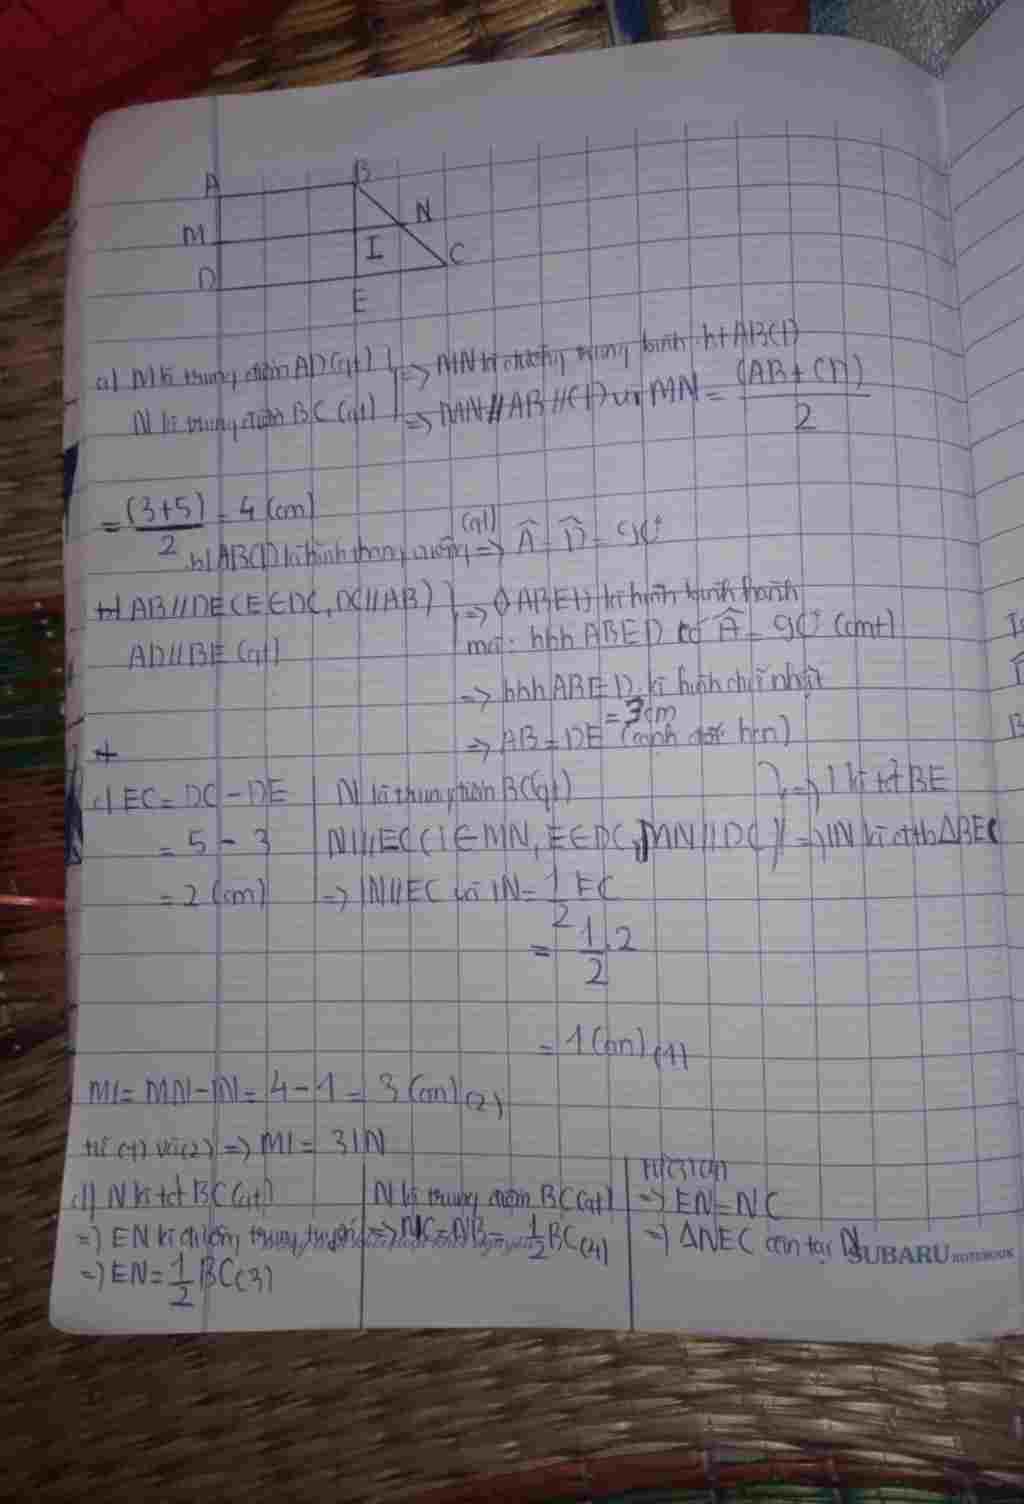 A B
M N
I C
D
E
a) M là trung điểm AD (gt) } => MN là đường trung bình ht ABCD
N là trung điểm BC (gt) => MN // AB // CD và MN = (AB + CD) / 2
= (3+5) / 2 = 4 (cm)
b) ABCD là hình thang vuông (gt) => Â = D̂ = 90°
b) AB // DE (E ∈ DC, DC // AB) } => ◊ ABED là hình bình hành
AD // BE (gt) mà: hbh ABED có Â = 90° (cmt)
=> hbh ABED là hình chữ nhật
=> AB = DE = 3cm (cạnh đối hcn)
c) EC = DC - DE N là trung điểm BC (gt) } => I là tđ BE
= 5 - 3 NI // EC (I ∈ MN, E ∈ DC, MN // DC) => IN là đtb ΔBEC
= 2 (cm) => IN // EC và IN = 1/2 EC
= 1/2 . 2
= 1 (cm) (1)
MI = MN - IN = 4 - 1 = 3 (cm) (2)
từ (1) và (2) => MI = 3IN
d) N là tđ BC (gt)
=> EN là đường trung tuyến
=> EN = 1/2 BC (3)
N là trung điểm BC (gt)
=> NC = NB = 1/2 BC (4)
từ (3) (4)
=> EN = NC
=> ΔNEC cân tại N
SUBARU NOTEBOOK